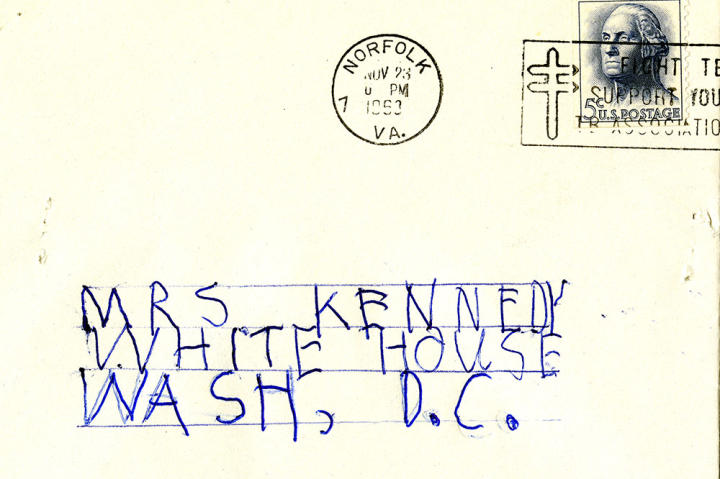 NORFOLK
NOV 23
PM
7
1963
VA.
FIGHT TE
SUPPORT YOU
TB ASSOCIATIO
5¢ U.S. POSTAGE
MRS KENNEDY
WHITE HOUSE
WASH, D.C.